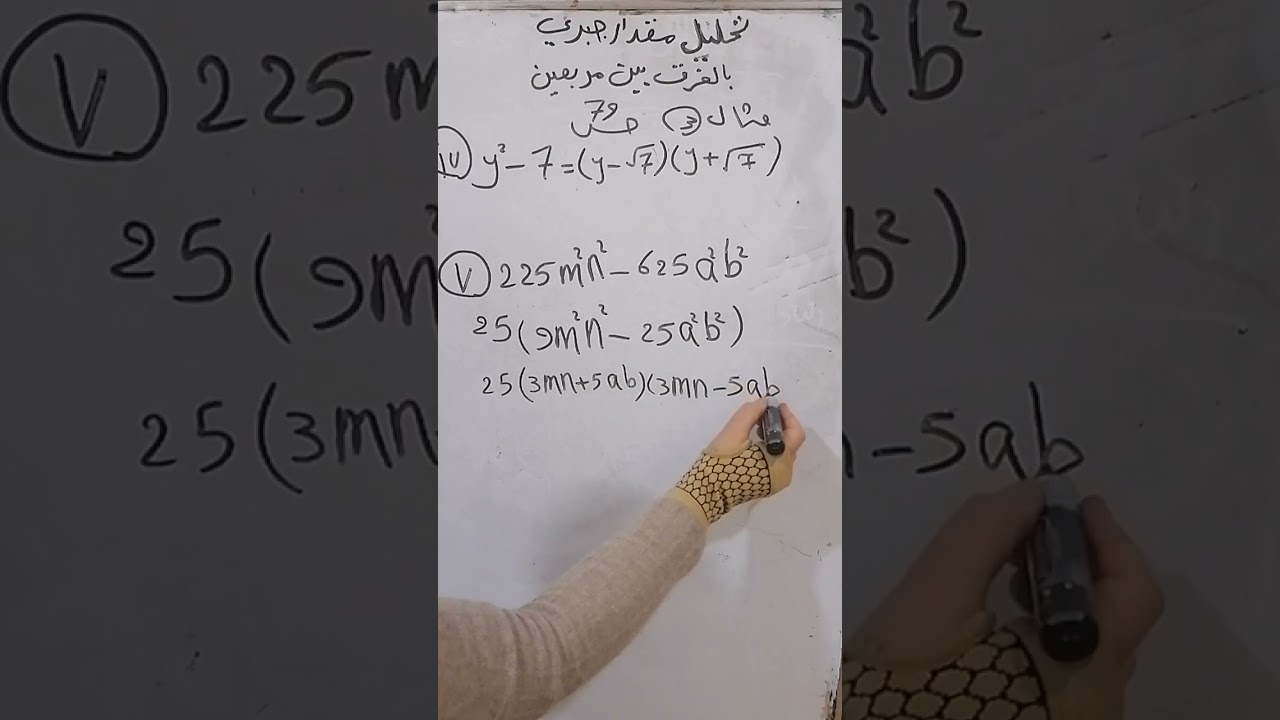 تحليل مقدار جبري
بالفرق بين مربعين
مثال (3) ص 79
IV y² - 7 = (y - √7)(y + √7)
V 225m²n² - 625a²b²
25(9m²n² - 25a²b²)
25(3mn+5ab)(3mn-5ab